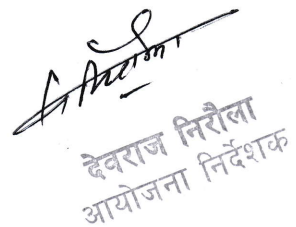 देवराज निरौला
आयोजना निर्देशक